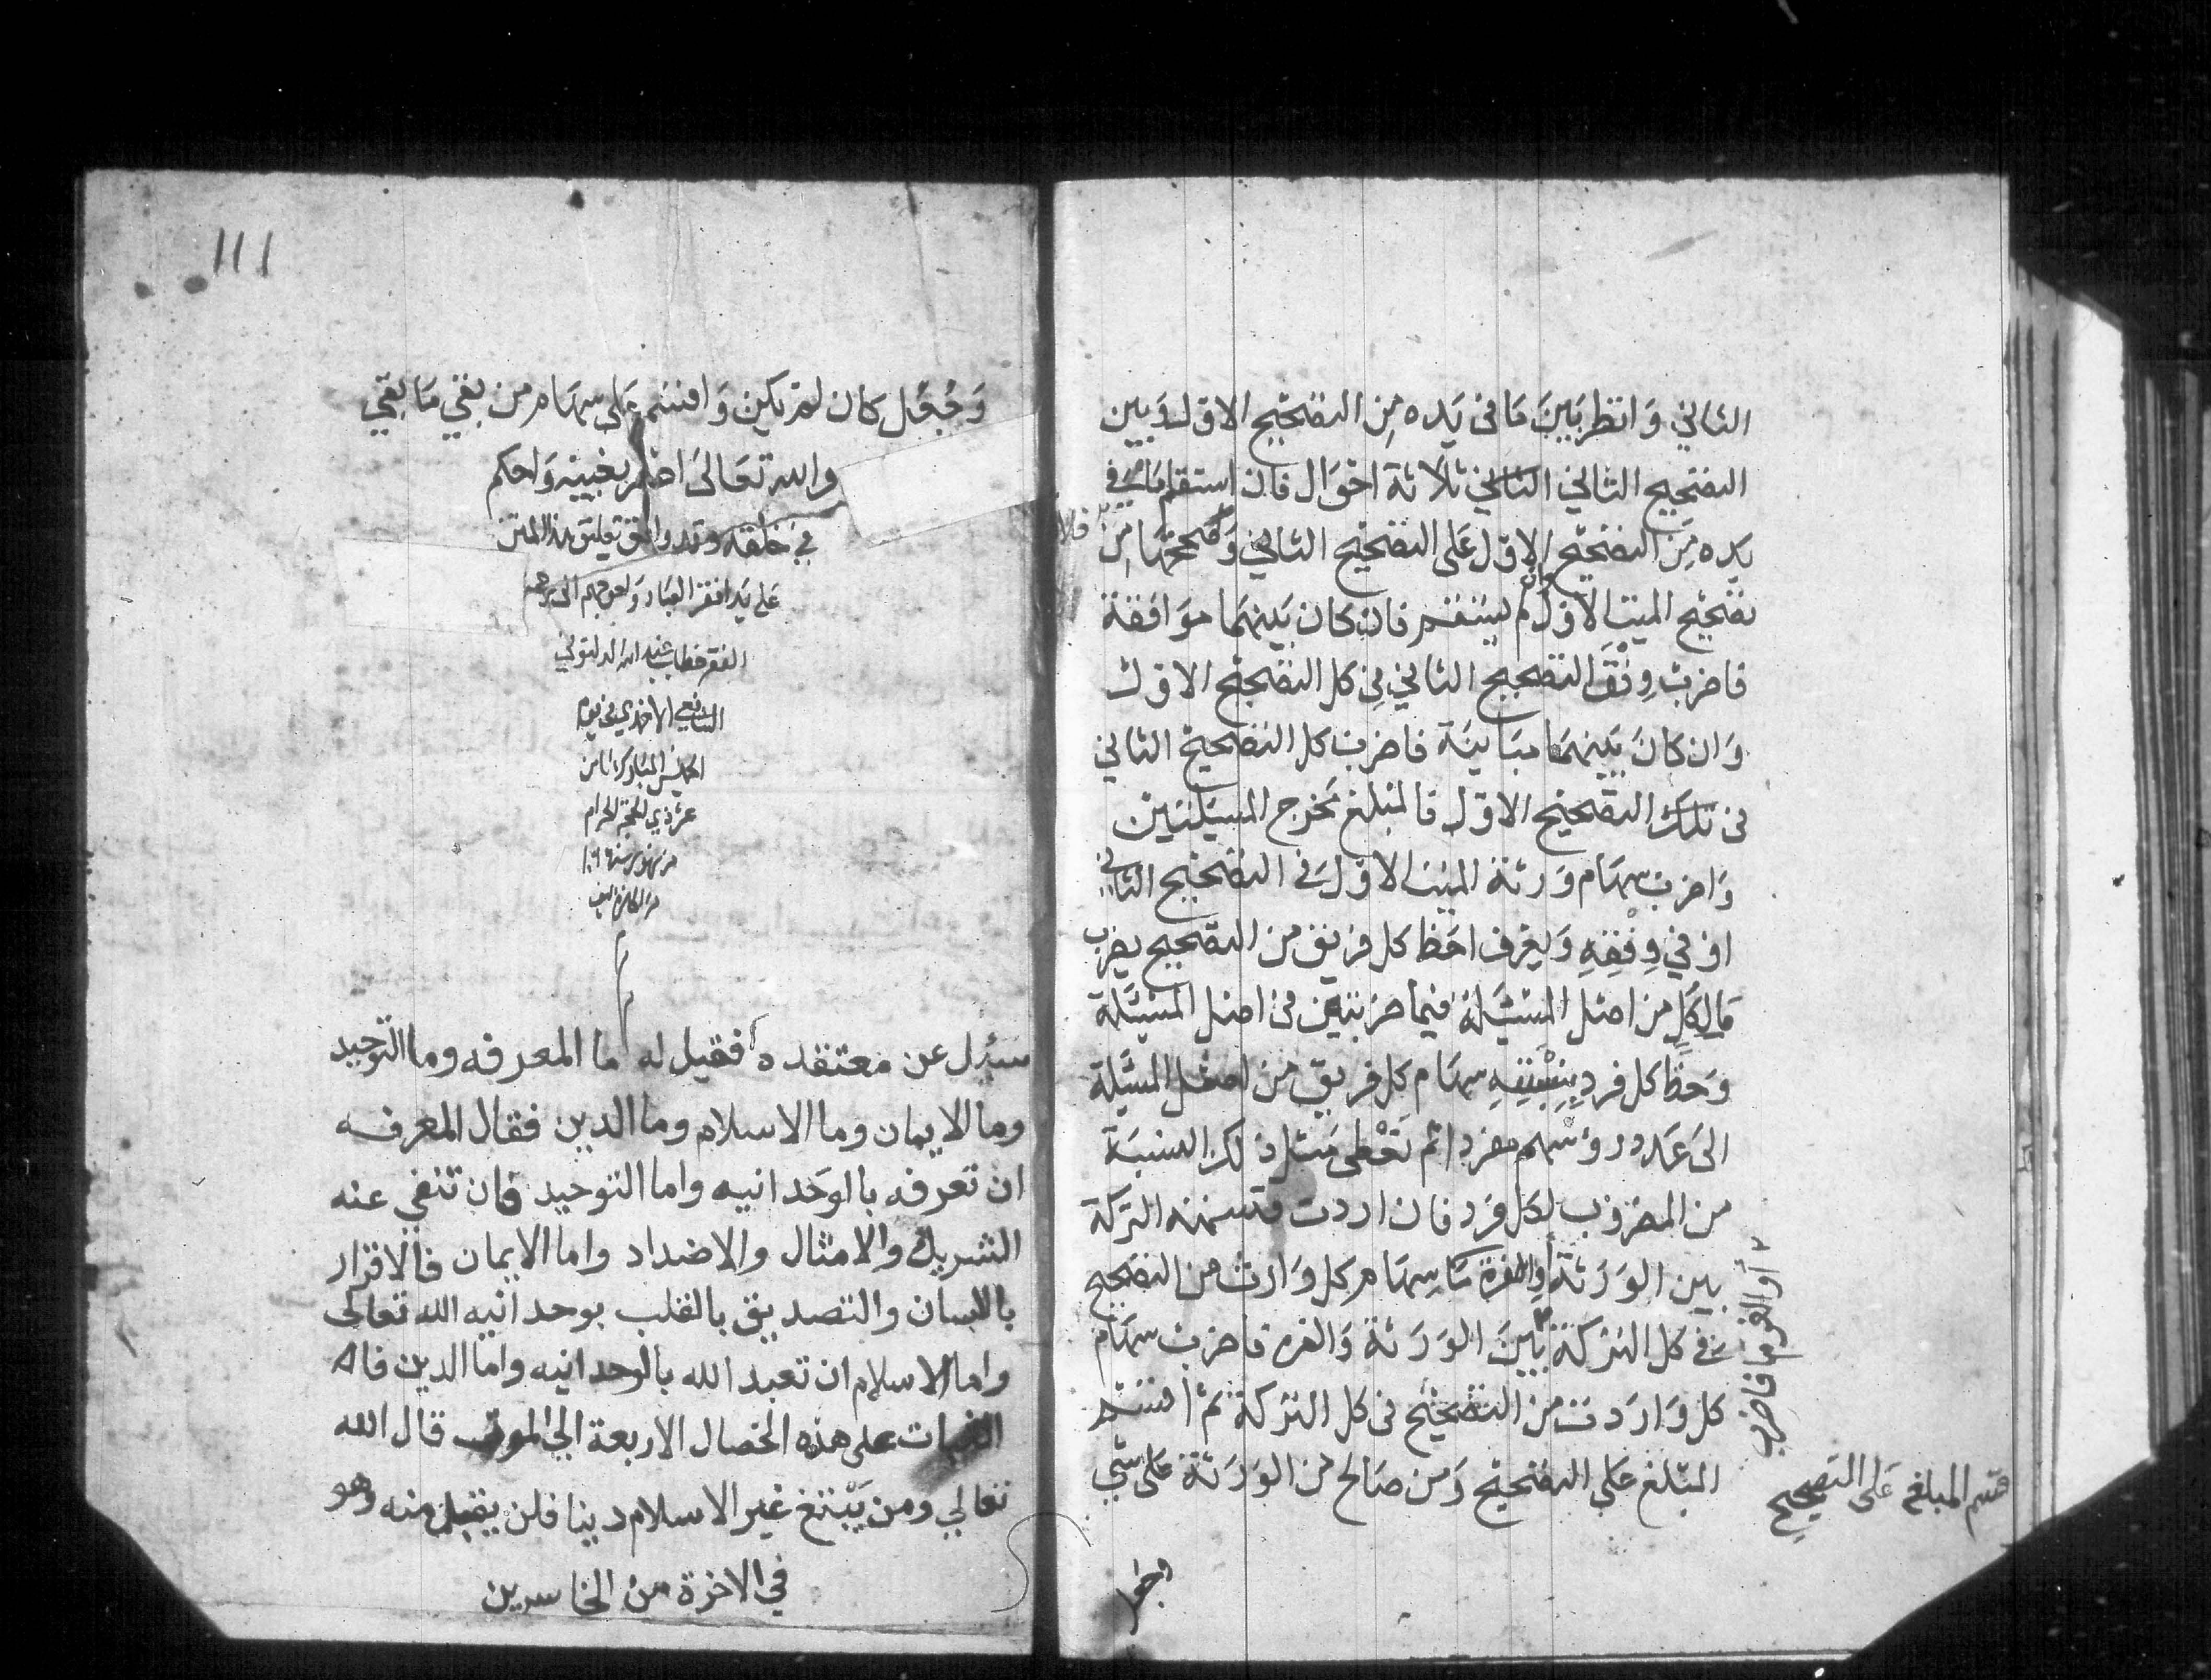 الثاني وَانظر بَينَ مَا في يَده مِن التصحيح الاول وَبين
التصحيح الثاني الثاني ثلاثة احْوَال فان استقام مَا في
يَده مِنَ التصحيح الاول عَلى التصحيح الثاني وَصحتها مِن
تصحيح الميت الاول وان لم يستقم فان كان بَينهمَا موَافقة
فاضربْ وِفْقَ التصحيح الثاني في كل التصحيح الاول
وَان كانَ بَينهمَا مبَاينَة فاضرب كل التصحيح الثاني
في تلك التصحيح الاول فالمبلغ مخرج المسئلتين
وَاضرب سهَام وَرثة الميت الاول في التصحيح الثاني
او في وِفْقِهِ وَيعرف احَظ كل فريق من التصحيح بضرب
مَا لِكلٍ من اصل المسْئَلة فيما ضربته في اصل المسْئَلة
وَحَظ كل فرد بِنِسْبَةِ سهَام كل فريق من اصل المسْئَلة
الىَ عَدد رؤسهم مفردا ثم تعْطى مثل ذلك النسبَة
من المضروب لكل فرد فان اردت قسمة التركة
بين الوَرَثة او الغرمَا سِهَام كل وَارث من التصحيح
في كل التركة بَينَ الوَرَثة وَالغرمَا فاضرب سهَام
كل وَارد من التصحيح في كل التركة ثم اقسم
المبلغ عَلى التصحيح وَمن صَالح من الوَرَثة عَلى شي
او الغرما فاضرب
قسم المبلغ عَلى التصحيح
وَجُعِل كان لم يكن وَاقسم عَلى سِهَام من بقي مَا بَقي
والله تعَالىَ اعلم بغيبه وَاحكم
في خلقه وقد وافق تعليق هذا المتن
عَلى يَد افقر العبَاد وَاحوجهم الى رحمة
الفقير خطاب عبد الله الدلتوني
الشافعي الاحمدي في يوم
الخميس المبارك ثامن
عشر ذي الحجة الحرام
من شهور سنة
سئل عن معتقده فقيل له ما المعرفه وما التوحيد
وما الايمان وما الاسلام وما الدين فقال المعرفه
ان تعرفه بالوحدانيه واما التوحيد فان تنفي عنه
الشريك والامثال والاضداد واما الايمان فالاقرار
باللسان والتصديق بالقلب بوحدانيه الله تعالى
واما الاسلام ان تعبد الله بالوحدانيه واما الدين فانه
الثبات على هذه الخصال الاربعة الي الموت قال الله
تعالي ومن يَبْتغ غير الاسلام دينا فلن يقبل منه وهو
في الاخرة من الخاسرين